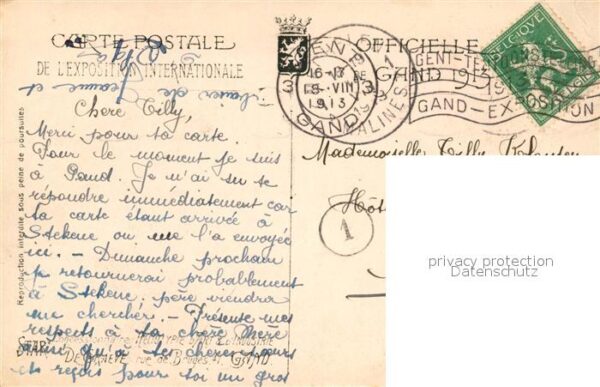 CARTE POSTALE
DE L'EXPOSITION INTERNATIONALE
OFFICIELLE
GAND 1913
BELGIQUE
GENT-
GAND-EXPOSITION
16-17
18-VIII
1913
GAND
MALINES
Chère Tilly,
Merci pour ta carte
Pour le moment je suis
à Gand. Je n'ai su te
répondre immédiatement car
ta carte étant arrivée à
Stekene ou me l'a envoyée
ici. - Dimanche prochain
je retournerai probablement
à Stekene, père viendra
me chercher. - Présente mes
respects à ta chère Mère
ainsi qu'à tes chères sœurs
et reçois pour toi un gros
Mademoiselle Tilly
Hôt
1
Reproduction interdite sous peine de poursuites
rue de Bruges
GAND
privacy protection
Datenschutz